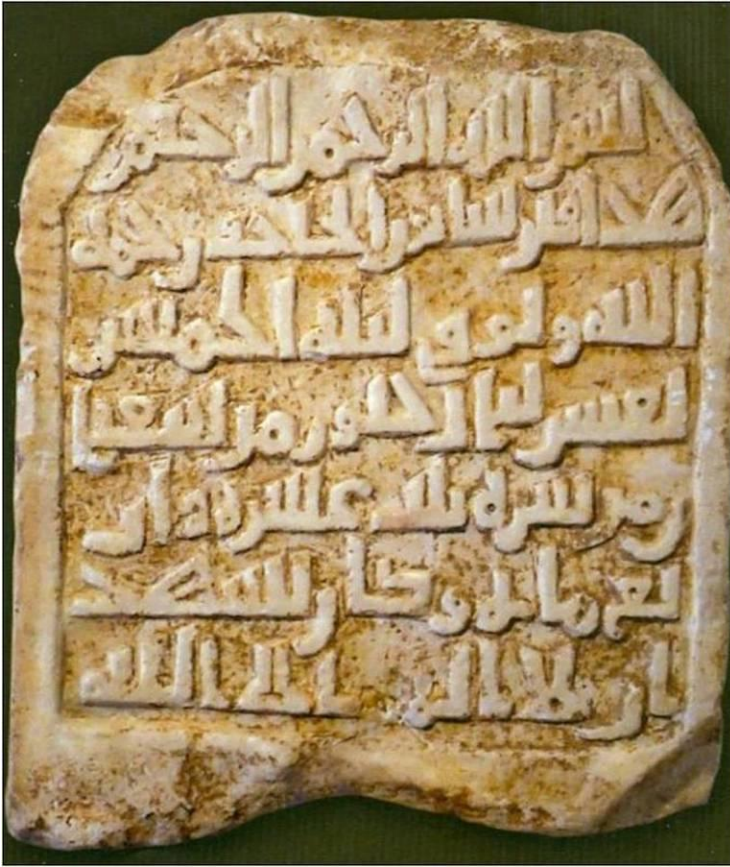 بسم الله الرحمن الرحيم
هذا قبر رحمه
الله وتوفي ليلة الخميس
لعشر ليال خلون من شعبا
ن من سنة ثلث عشرة وار
بع مائة وكان يشهد
ان لا اله الا الله